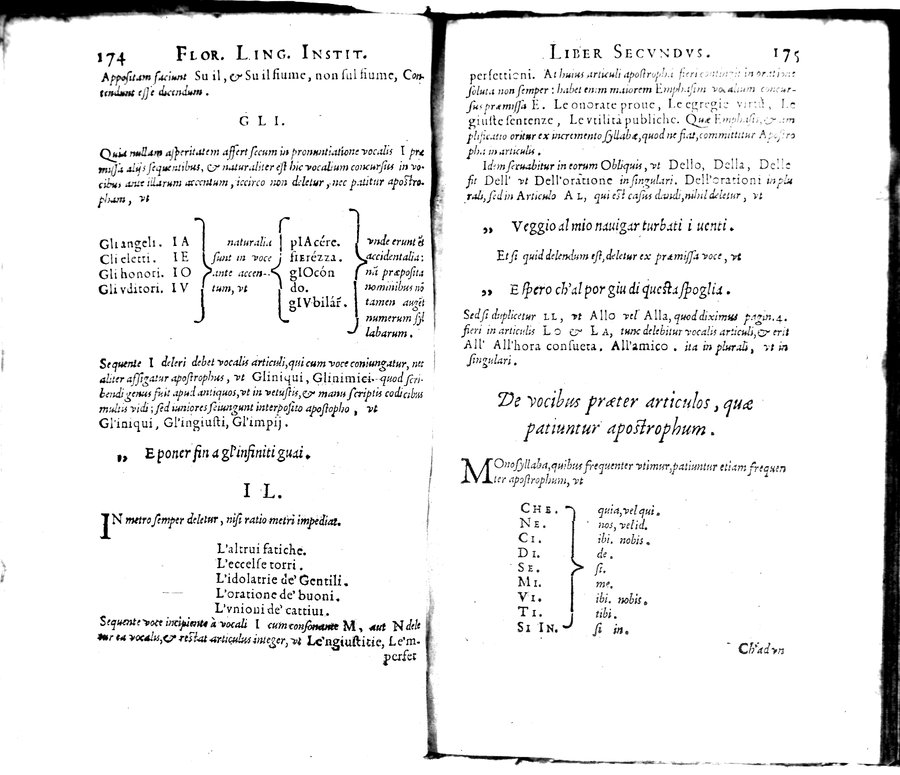 174 FLOR. LING. INSTIT.
Appositam faciunt Su il, & Su il fiume, non sul fiume, Con-
tendunt esse dicendum.
GLI.
Quia nullam asperitatem affert secum in pronuntiatione vocalis I præ
missa alijs sequentibus, & naturaliter est hic vocalium concursus in vo-
cibus ante illarum accentum, iccirco non deletur, nec patitur apostro-
pham, vt
Gli angeli. IA
Cli eletti. IE
Gli honori. IO
Gli vditori. IV
naturalia
sunt in voce
ante accen-
tum, vt
pIAcére.
fIErézza.
gIOcón
do.
gIVbilár.
vnde erunt &
accidentalia:
nā præposita
nominibus nō
tamen auget
numerum syl
labarum.
Sequente I deleri debet vocalis articuli, qui cum voce coniungatur, nec
aliter assigatur apostrophus, vt Gliniqui, Glinimici. quod scri-
bendi genus fuit apud antiquos, vt in vetustis, & manu scriptis codicibus
multis vidi; sed iuniores seiungunt interposito apostopho, vt
Gl'iniqui, Gl'ingiusti, Gl'impij.
„ E poner fin a gl'infiniti guai.
IL.
IN metro semper deletur, nisi ratio metri impediat.
L'altrui fatiche.
L'eccelse torri.
L'idolatrie de' Gentili.
L'oratione de' buoni.
L'vnioni de' cattiui.
Sequente voce incipiente à vocali I cum consonante M, aut N dele
tur ea vocalis, & restat articulus integer, vt Le'ngiustitie, Le'm-
perfet
LIBER SECVNDVS. 175
perfettioni. At huius articuli apostropha fieri contingit in oratione
soluta non semper: habet enim maiorem Emphasim vocalium concur-
sus præmissa E. Le onorate proue, Le egregie virtù, Le
giuste sentenze, Le vtilità publiche. Quæ Emphasis, & am
plificatio oritur ex incremento syllabæ, quod ne fiat, committitur Apostro
pha in articulis.
Idem seruabitur in eorum Obliquis, vt Dello, Della, Delle
fit Dell' vt Dell'oratione in singulari. Dell'orationi in plu
rali, sed in Articulo AL, qui est casus dandi, nihil deletur, vt
„ Veggio al mio nauigar turbati i uenti.
Et si quid delendum est, deletur ex præmissa voce, vt
„ E spero ch'al por giu di questa spoglia.
Sed si duplicetur LL, vt Allo vel Alla, quod diximus pagin. 4.
fieri in articulis LO & LA, tunc delebitur vocalis articuli, & erit
All' All'hora consueta. All'amico. ita in plurali, vt in
singulari.
De vocibus præter articulos, quæ
patiuntur apostrophum.
MOnosyllaba, quibus frequenter vtimur, patiuntur etiam frequen
ter apostrophum, vt
CHE. quia, vel qui.
NE. nos, vel id.
CI. ibi. nobis.
DI. de.
SE. si.
MI. me.
VI. ibi. nobis.
TI. tibi.
SI IN. si in.
Ch'ad vn